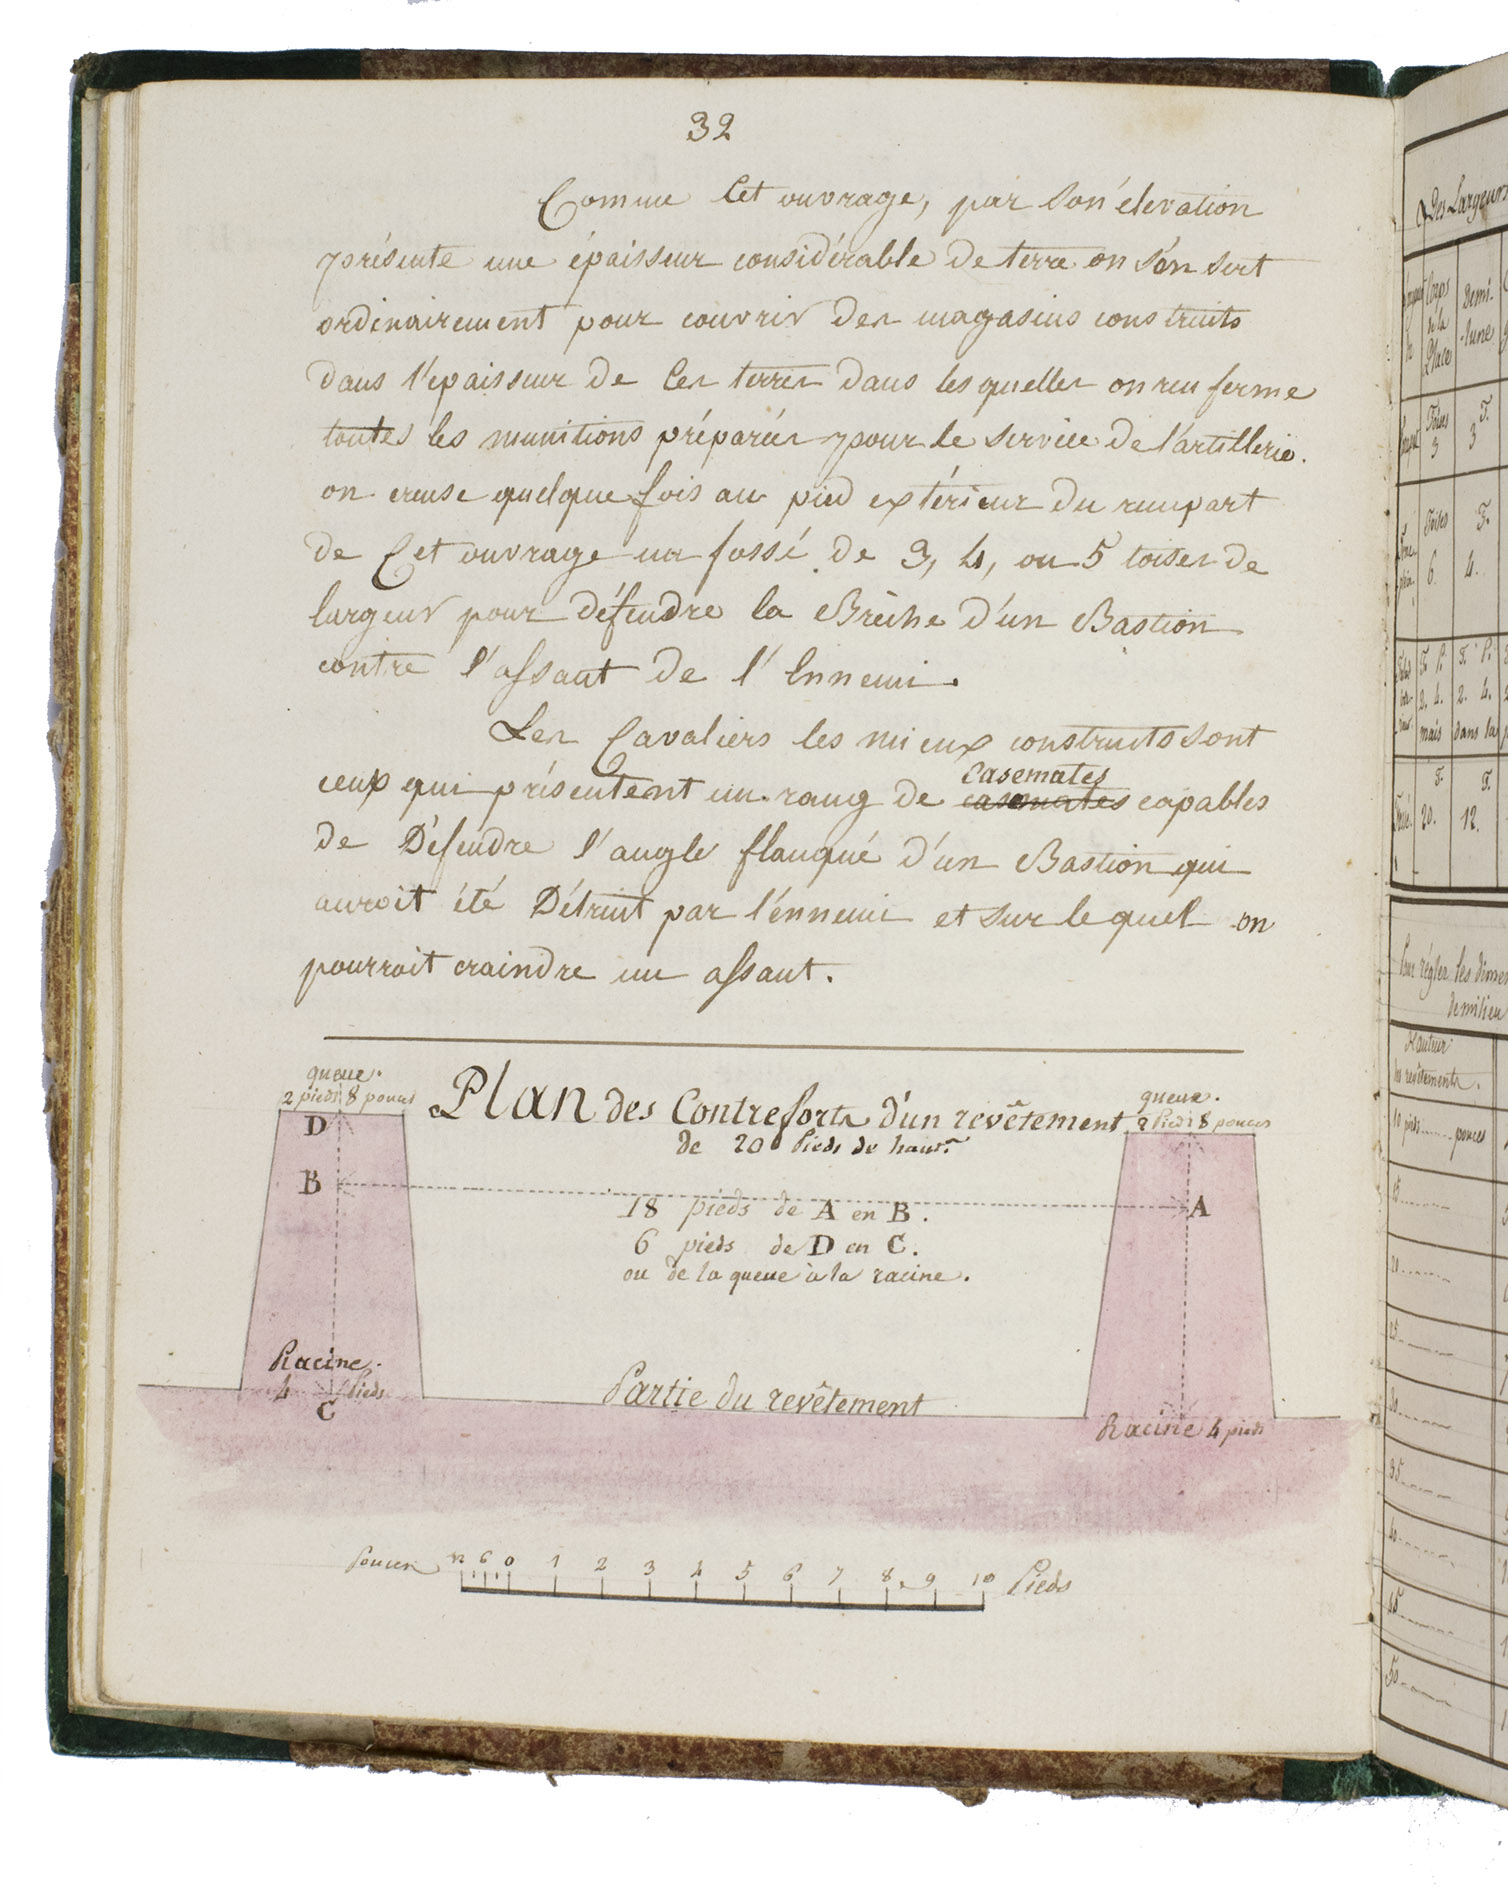 32
Comme Cet ouvrage, par Son élevation
présente une épaisseur considérable de terre on s'en sert
ordinairement pour couvrir des magasins construits
dans l'épaisseur de Ces terres dans lesquelles on renferme
toutes les munitions préparées pour le service de l'artillerie.
on creuse quelque fois au pied extérieur du rempart
de Cet ouvrage un fossé de 3, 4, ou 5 toises de
largeur pour défendre la Brèche d'un Bastion
contre l'assaut de l'Ennemi.
Les Cavaliers les mieux construits sont
Casemates
ceux qui présentent un rang de casemates capables
de Défendre l'angle flanqué d'un Bastion qui
auroit été Détruit par l'énnemi et sur lequel on
pourroit craindre un assaut.
queue.
2 pieds 8 pouces
D
B
Racine.
4 Pieds
C
Plan des Contreforts d'un revêtement
de 20 Pieds de hautr.
18 pieds de A en B.
6 pieds de D en C.
ou de la queue à la racine.
queue.
2 Pieds 8 pouces
A
Racine 4 pieds
Partie du revêtement
Pouces 12 6 0 1 2 3 4 5 6 7 8 9 10 Pieds
Des Largeurs
Corps
de la
Place
Demi-
lune
Toises
3
T.
3
Toises
6.
T.
4.
T. P.
2. 4.
mais
T. P.
2. 4.
dans la
T.
20.
T.
12.
Pour régler les dimen
de milieu
Hauteur
des revêtements.
10 pids pouces
15
20
25
30
35
40
45
50